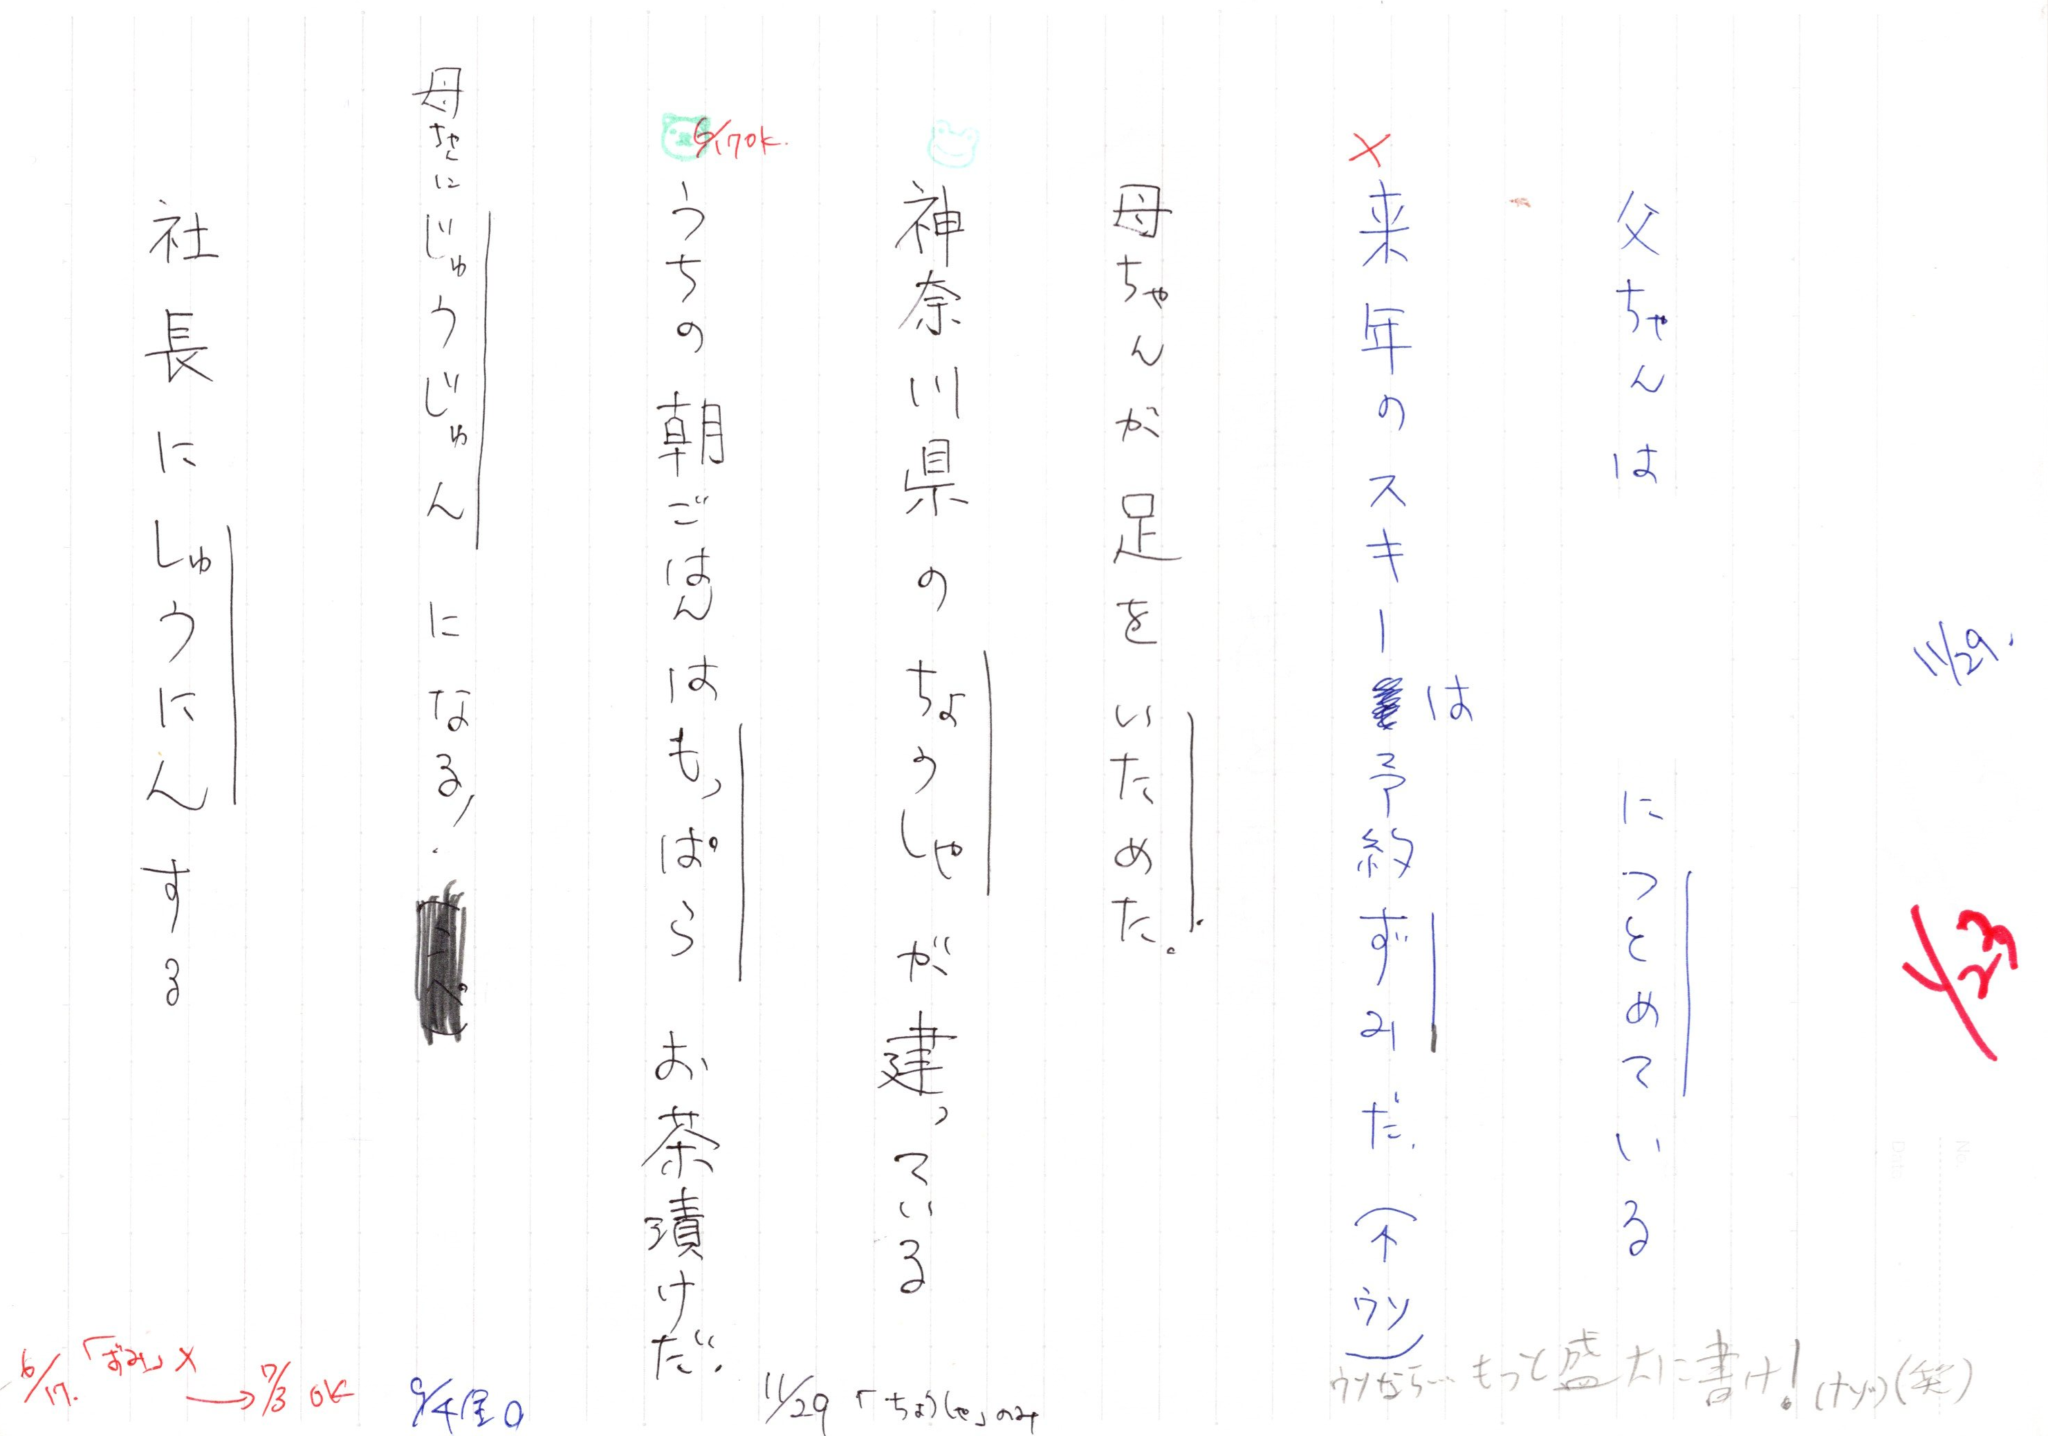 11/29.
1/29
父ちゃんは　　　につとめている
×
来年のスキーは予約ずみだ.(↑ウソ)
母ちゃんが足をいためた。
神奈川県のちょうしゃが建っている
6/17 OK.
うちの朝ごはんはもっぱらお茶漬けだ.
母ちゃんにじゅうじゅんになる,.
社長にしゅうにんする
ウソなら…もっと盛大に書け!(ナゾ)(笑)
11/29「ちょうしゃ」のみ
6/17.「ずみ」×→7/3 OK